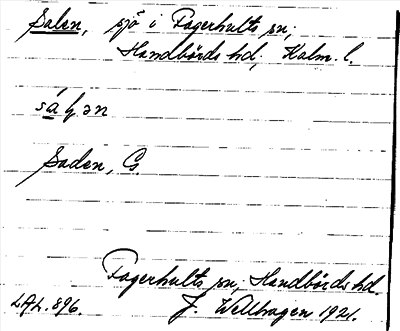 Salen, sjö i Fagerhults sn,
Handbörds hd, Kalm. l.
Saden, G.
Fagerhults sn, Handbörds hd.
LAL. 896. J. Wellhagen 1921.